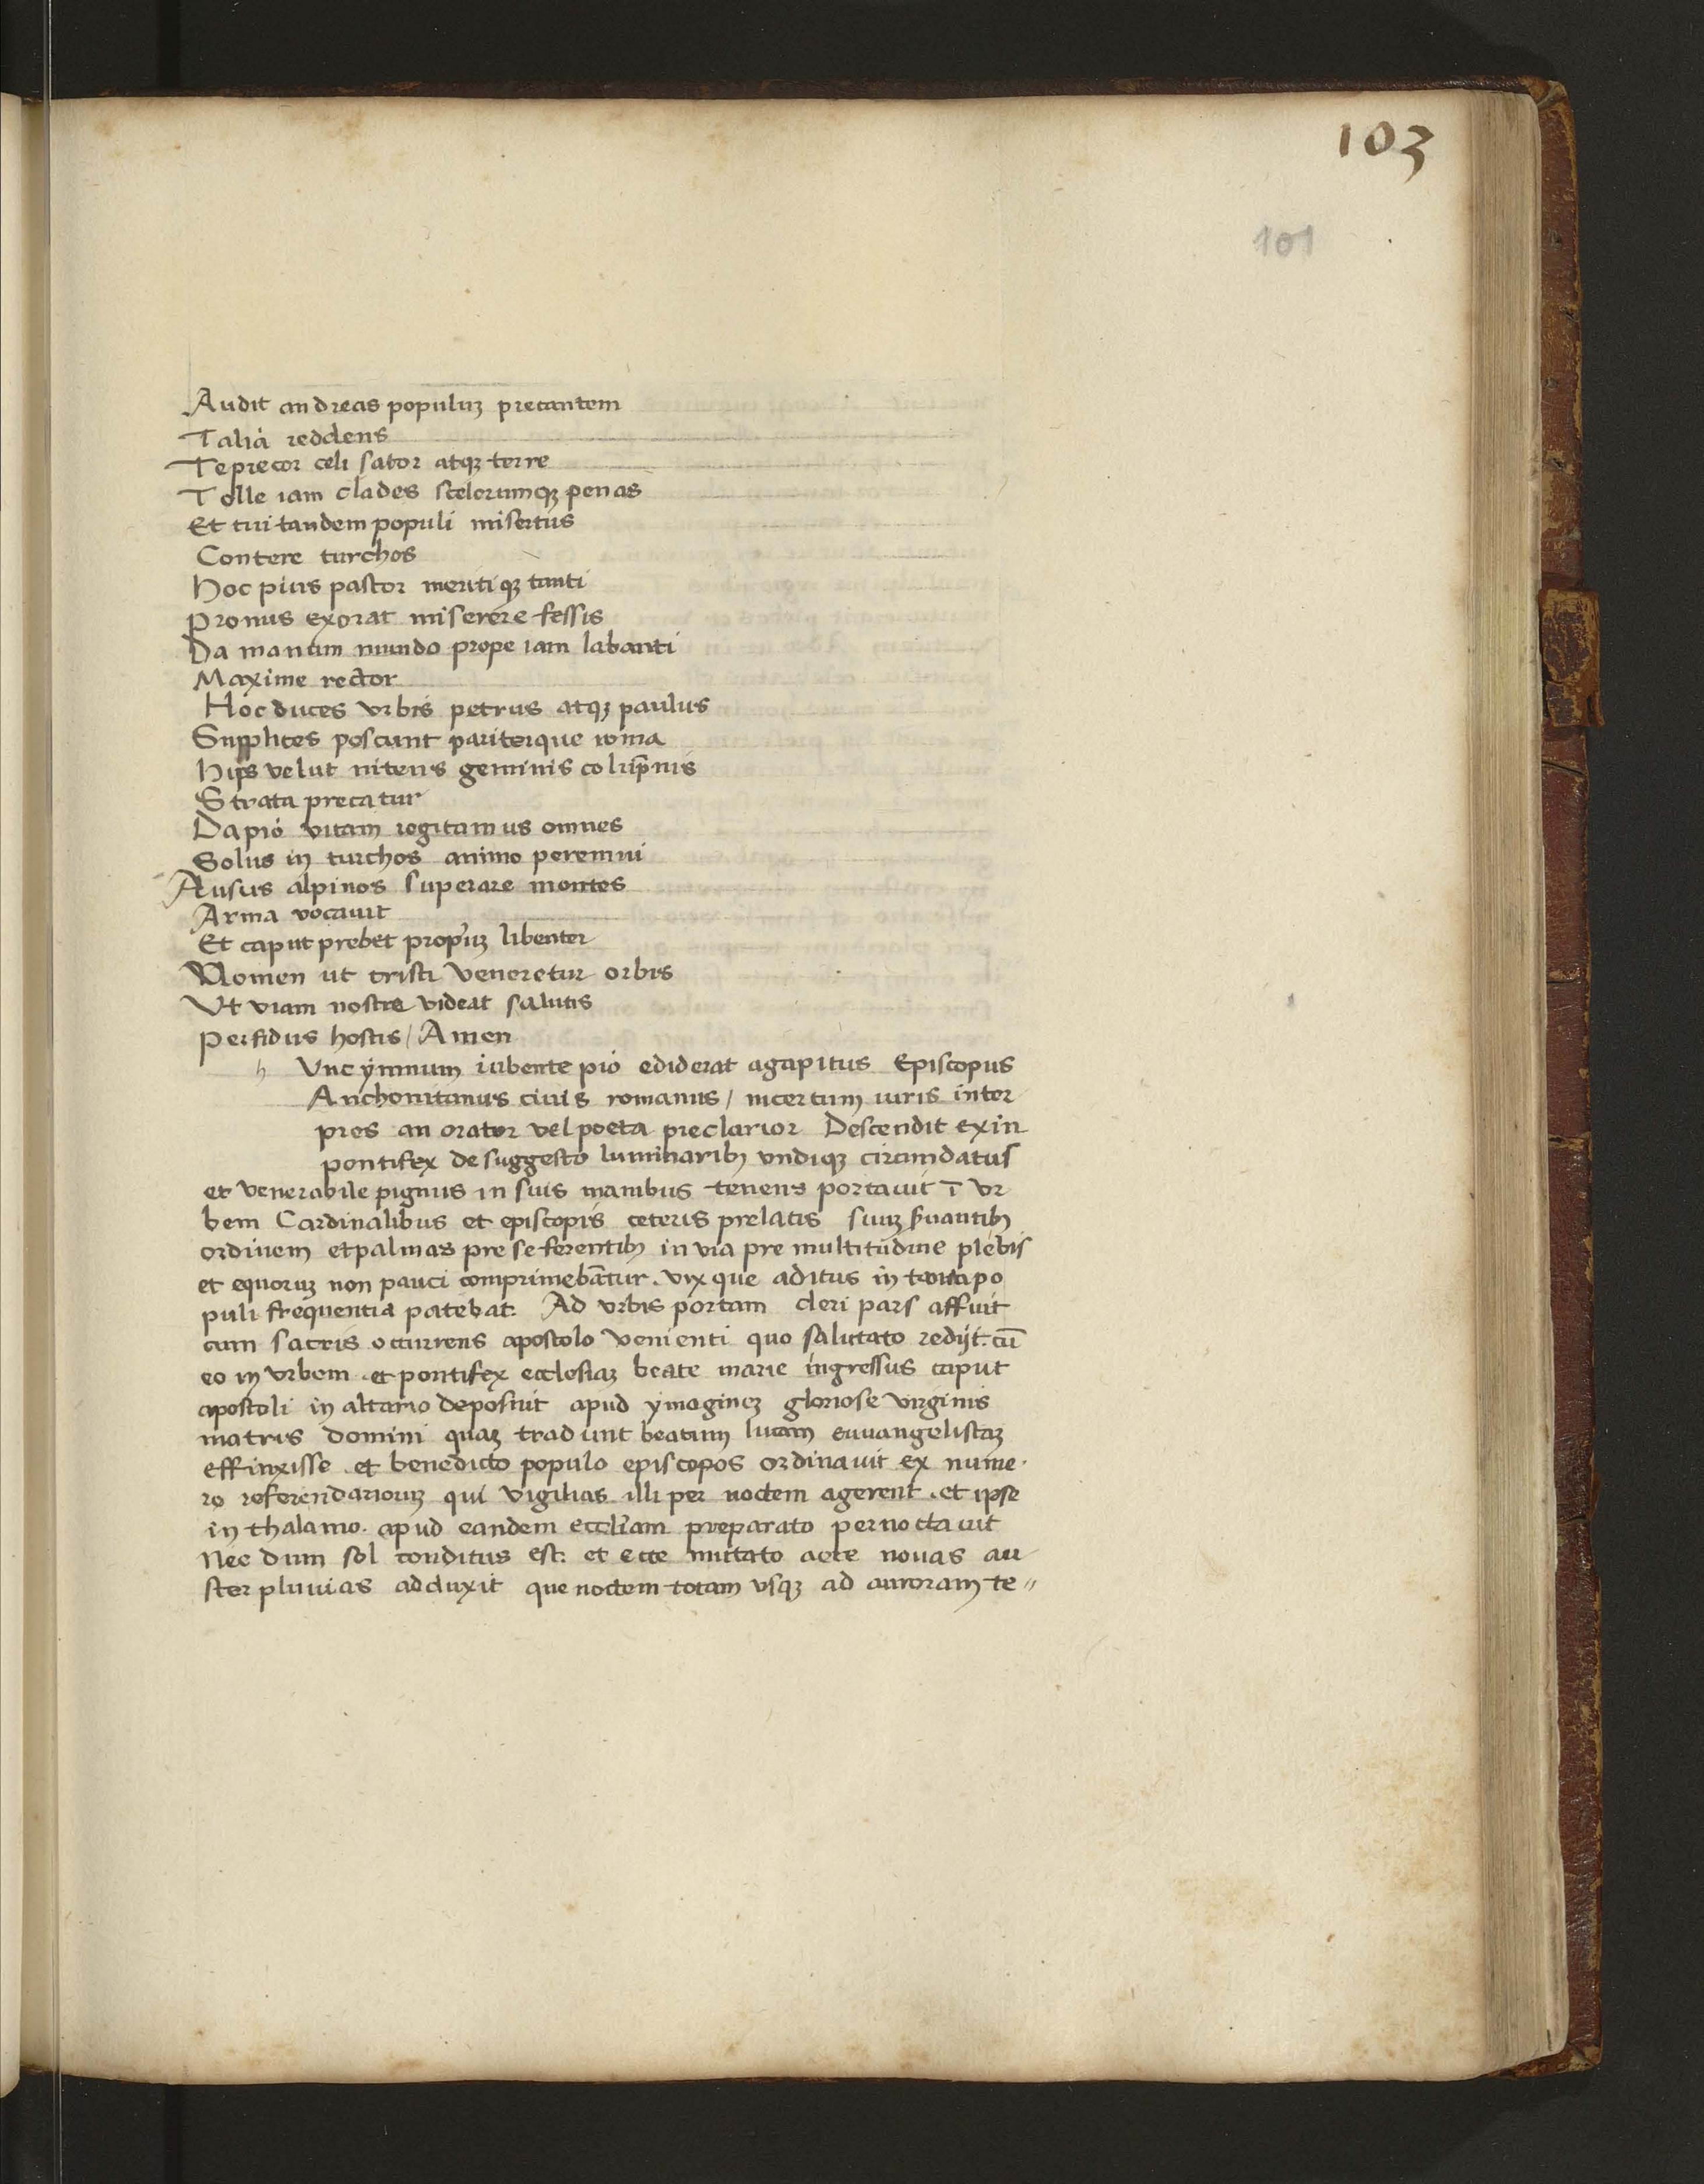 103
101
Audit andreas populuꝫ precantem
Talia reddens
Te precor celi sator atqꝫ terre
Tolle iam clades scelerumqꝫ penas
Et tui tandem populi misertus
Contere turchos
Hoc pius pastor meritiqꝫ tanti
Pronus exorat miserere fessis
Da manum mundo prope iam labanti
Maxime rector
Hoc duces vrbis petrus atqꝫ paulus
Supplices poscunt pariterque roma
Hijs velut nitens geminis colūpnis
Strata precatur
Da pio vitam regitamus omnes
Solus in turchos animo peremni
Ausus alpinos superare montes
Arma vocauit
Et caput prebet propriuꝫ libenter
Nomen ut cristi veneretur orbis
Vt viam nostre videat salutis
Perfidus hostis / Amen
h Vnc ymnum iubente pio ediderat agapitus Episcopus
Anchonitanus ciuis romanus / incertum iuris inter
pres an orator vel poeta preclarior Descendit exin
pontifex de suggesto luminaribꝫ vndiqꝫ circumdatus
et venerabile pignus in suis manibus tenens portauit ī vr
bem Cardinalibus et episcopis ceteris prelatis suuꝫ ẜuantibꝫ
ordinem et palmas pre se ferentibꝫ in via pre multitudine plebis
et equoruꝫ non pauci comprimebātur. vix que aditus in tanta po
puli frequentia patebat. Ad vrbis portam cleri pars affuit
cum sacris occurrens apostolo venienti quo salutato redijt. cū
eo in vrbem. et pontifex ecclesiaꝫ beate marie ingressus caput
apostoli in altario deposuit apud ymagineꝫ gloriose virginis
matris domini quaꝫ tradunt beatum lucam euuangelistaꝫ
effinxisse. et benedicto populo episcopos ordinauit ex nume.
ro referendarioruꝫ qui vigilias illi per noctem agerent. et ipse
in thalamo. apud eandem eccl̄iam preparato pernoctauit
Nec dum sol conditus est. et ecce mutato aere nouas au
ster pluuias adduxit que noctem totam vsqꝫ ad auroram te〃